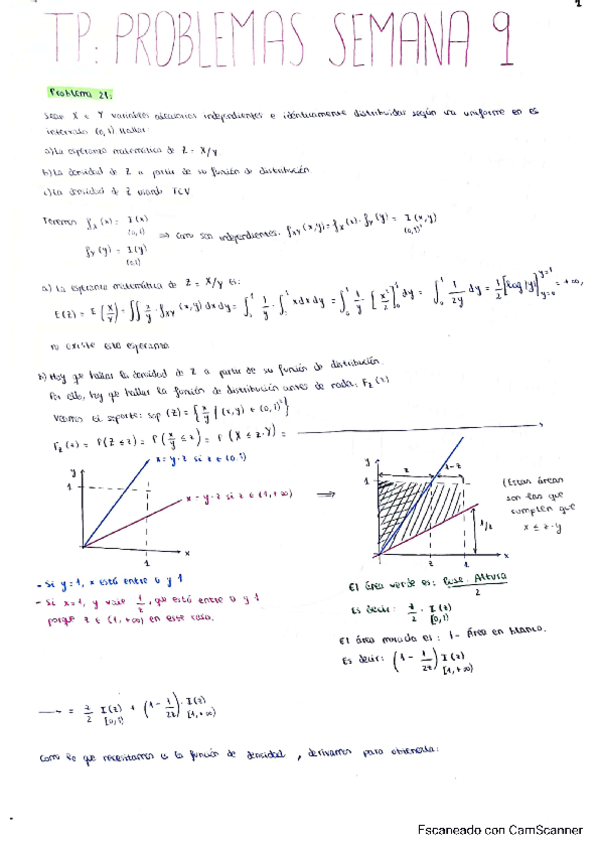 1
TP: PROBLEMAS SEMANA 9
Problema 21.
Sean X e Y variables aleatorias independientes e idénticamente distribuidas según una uniforme en el
intervalo (0,1) Hallar:
a) La esperanza matemática de Z = X/Y
b) La densidad de Z a partir de su función de distribución
c) La densidad de Z usando TCV
Tenemos f_X(x) = I(x) (0,1)
f_Y(y) = I(y) (0,1)
⇒ Como son independientes: f_XY(x,y) = f_X(x)·f_Y(y) = I(x,y) (0,1)²
a) La esperanza matemática de Z = X/Y es:
E(Z) = E(X/Y) = ∬ x/y · f_XY(x,y) dx dy = ∫₀¹ 1/y · ∫₀¹ x dx dy = ∫₀¹ 1/y · [x²/2]₀¹ dy = ∫₀¹ 1/2y dy = 1/2 [log|y|] y=1 y=0 = +∞,
no existe esta esperanza
b) Hay que hallar la densidad de Z a partir de su función de distribución.
Por ello, hay que hallar la función de distribución antes de nada: F_Z(z)
Veamos el soporte: sop(Z) = {x/y | (x,y) ∈ (0,1)²}
F_Z(z) = P(Z ≤ z) = P(X/Y ≤ z) = P(X ≤ z·Y) =
x = y·z si z ∈ (0,1)
y
1
x = y·z si z ∈ (1,+∞)
x
1
⇒
y
1
z
1-z
1/z
x
z
1
(Estas áreas
son las que
cumplen que
x ≤ z·y
- Si y=1, x está entre 0 y 1
- Si x=1, y vale 1/z, que está entre 0 y 1
porque z ∈ (1,+∞) en este caso.
El área verde es: Base·Altura/2
Es decir: z/2 · I(z) [0,1)
El área morada es: 1 - Área en blanco.
Es decir: (1 - 1/2z) I(z) [1,+∞)
= z/2 I(z) [0,1) + (1 - 1/2z)·I(z) [1,+∞)
Como lo que necesitamos es la función de densidad, derivamos para obtenerla:
Escaneado con CamScanner